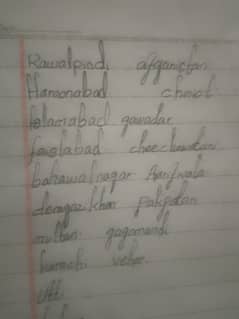 Rawalpindi afganistan
Haroonabad chniot
Islamabad gawadar
faislabad cheechawatani
bahawalnagar Arifwala
deragazikhan pakpatan
multan gagomandi
karachi vehar